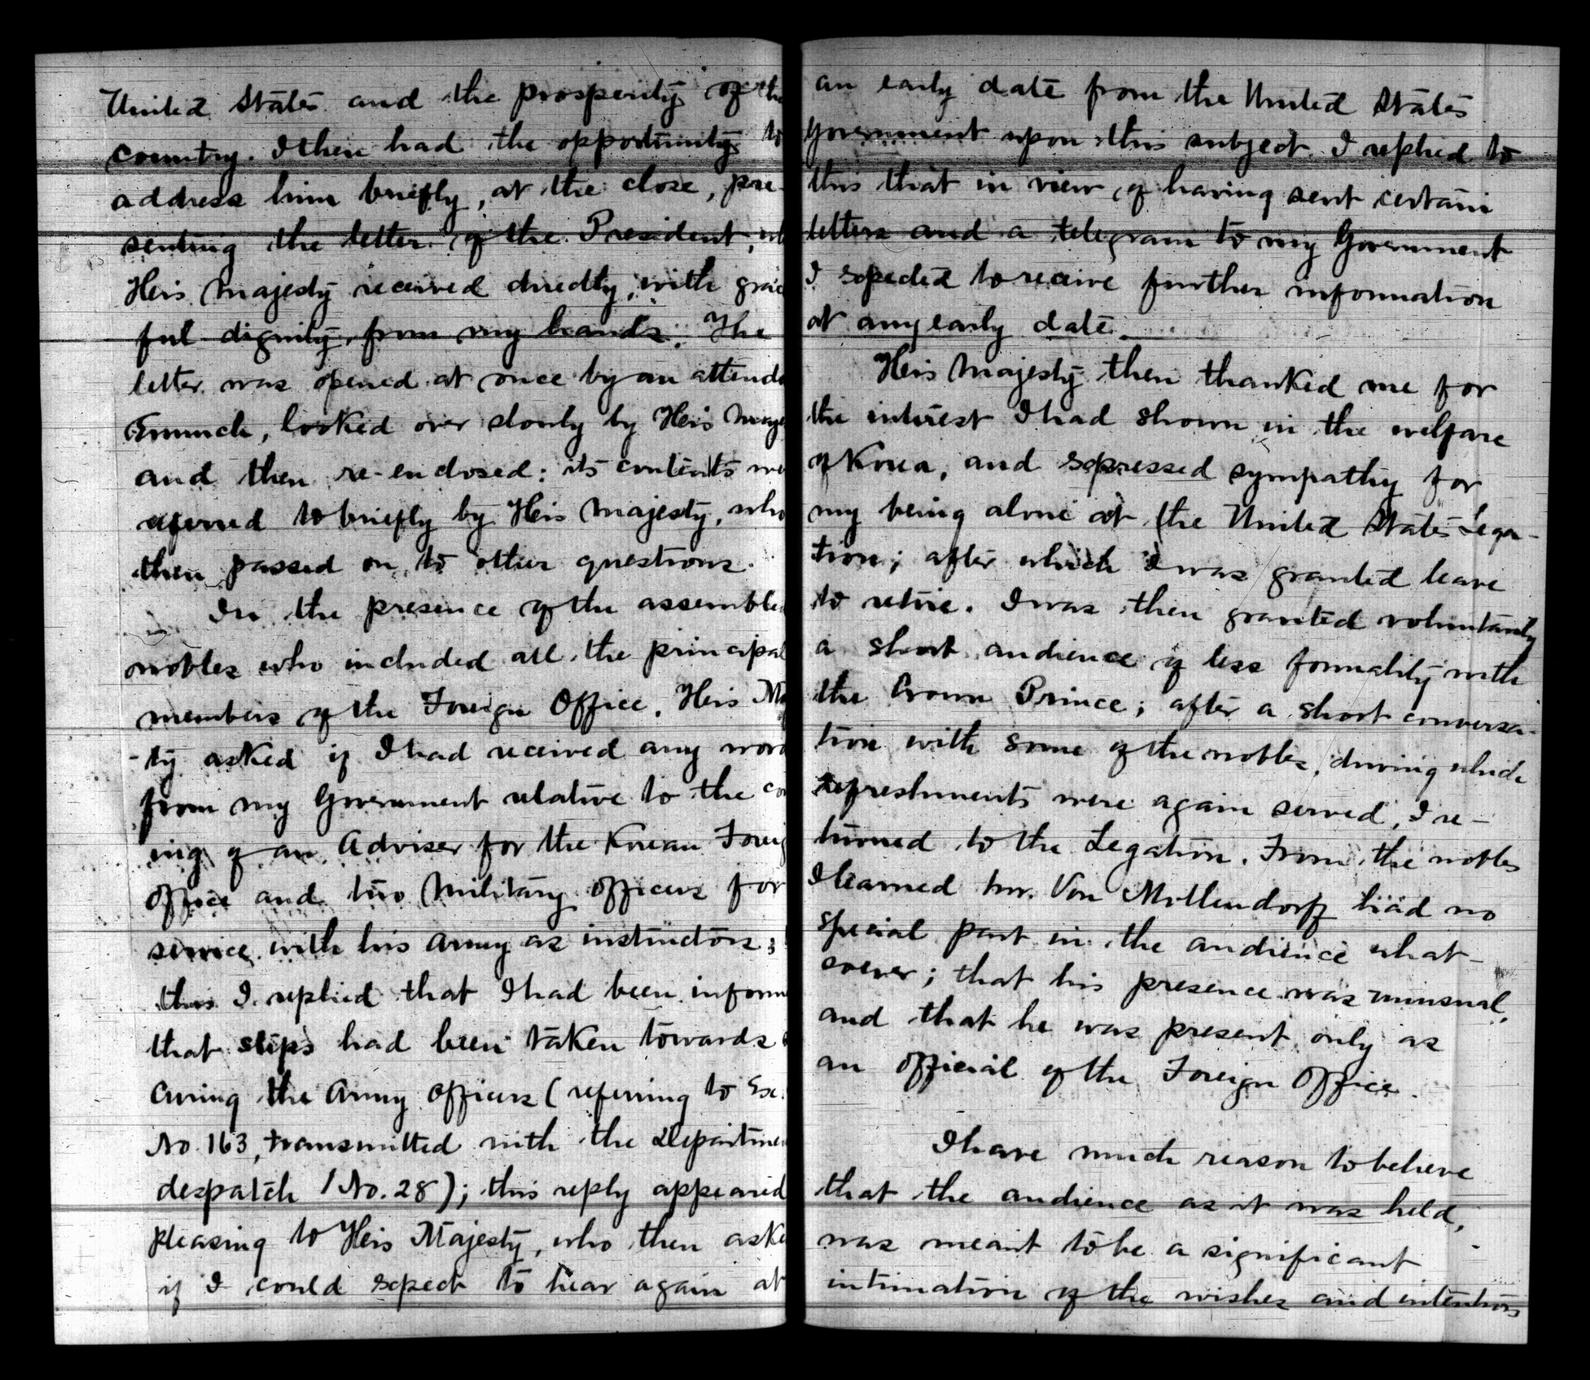 United States and the prosperity of th
country. I then had the opportunity to
address him briefly, at the close, pre-
senting the letter of the President, wh
His Majesty received directly, with grac
ful dignity, from my hands. The
letter was opened at once by an attenda
Eunuch, looked over slowly by His Maje
and then re-enclosed: its contents we
referred to briefly by His Majesty, who
then passed on to other questions.
In the presence of the assemble
nobles who included all the principal
members of the Foreign Office, His Maj
-ty asked if I had received any word
from my Government relative to the co
ing of an Adviser for the Korean Foreig
Office and two Military officers for
service with his Army as instructors;
this I replied that I had been inform
that steps had been taken towards
curing the Army officers (referring to Ex.
No. 163, transmitted with the Departmen
despatch / No. 28); this reply appeared
pleasing to His Majesty, who then aske
if I could expect to hear again at
an early date from the United States
Government upon this subject. I replied to
this that in view of having sent certain
letters and a telegram to my Government
I expected to receive further information
at any early date.
His Majesty then thanked me for
the interest I had shown in the welfare
of Korea, and expressed sympathy for
my being alone at the United States Lega-
tion; after which I was granted leave
to retire. I was then granted voluntarily
a short audience of less formality with
the Crown Prince; after a short conversa-
tion with some of the nobles, during which
refreshments were again served, I re-
turned to the Legation. From the nobles
I learned Mr. Von Mollendorff had no
special part in the audience what-
soever; that his presence was unusual,
and that he was present only as
an official of the Foreign Office.
I have much reason to believe
that the audience as it was held,
was meant to be a significant
intimation of the wishes and intentions